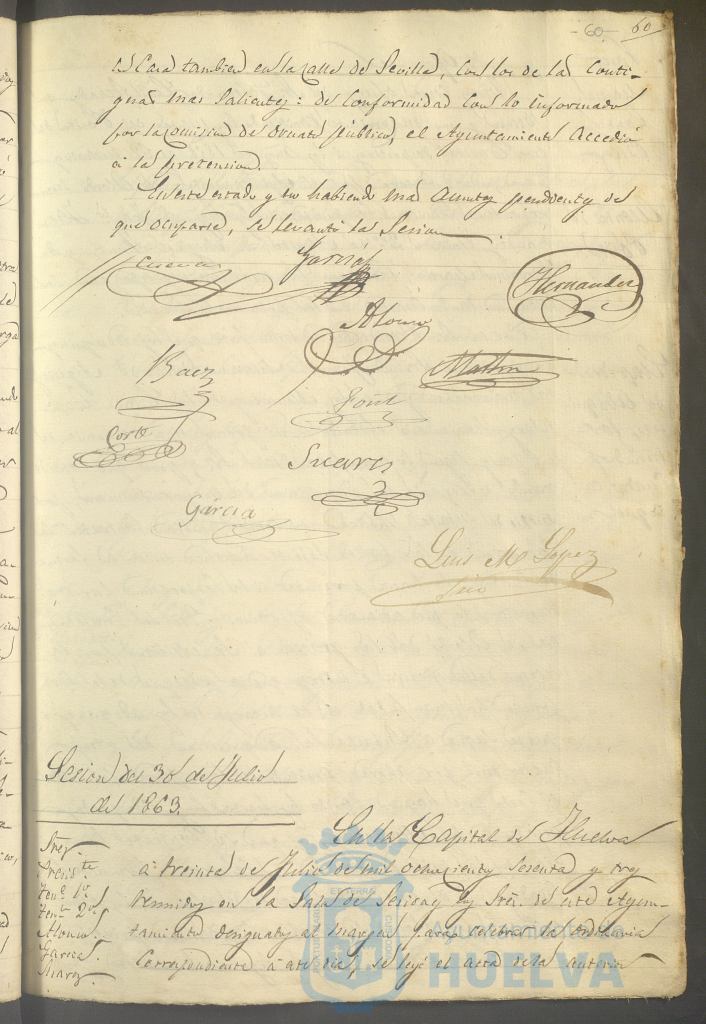 -60- 60
su Casa tambien en la calle de Sevilla, con los de las Conti-
guas mas salientes: de Conformidad con lo informado
por la comision de ornato público, el Ayuntamiento accedió
á la pretension.
En este estado y no habiendo mas asuntos pendientes de
que ocuparse, se levantó la Sesion
Cuevas Garcia Hernandez
Alonso
Baez Martin
Font
Corté
Suares
Garcia
Luis M Lopez
Srio
Sesion del 30 de Julio
de 1863.
En la Capital de Huelva
Sres.
Presid.te
Ten.e 1.o
Ten.te 2.o
Alonso.
Garcia.
Suarez.
á treinta de Julio de mil ochocientos sesenta y tres
reunidos en la Sala de Sesiones los Sres. de este Ayun-
tamiento designados al margen, para celebrar la ordinaria
Correspondiente á este dia, se leyó el acta de la anterior
Ayuntamiento de
HUELVA